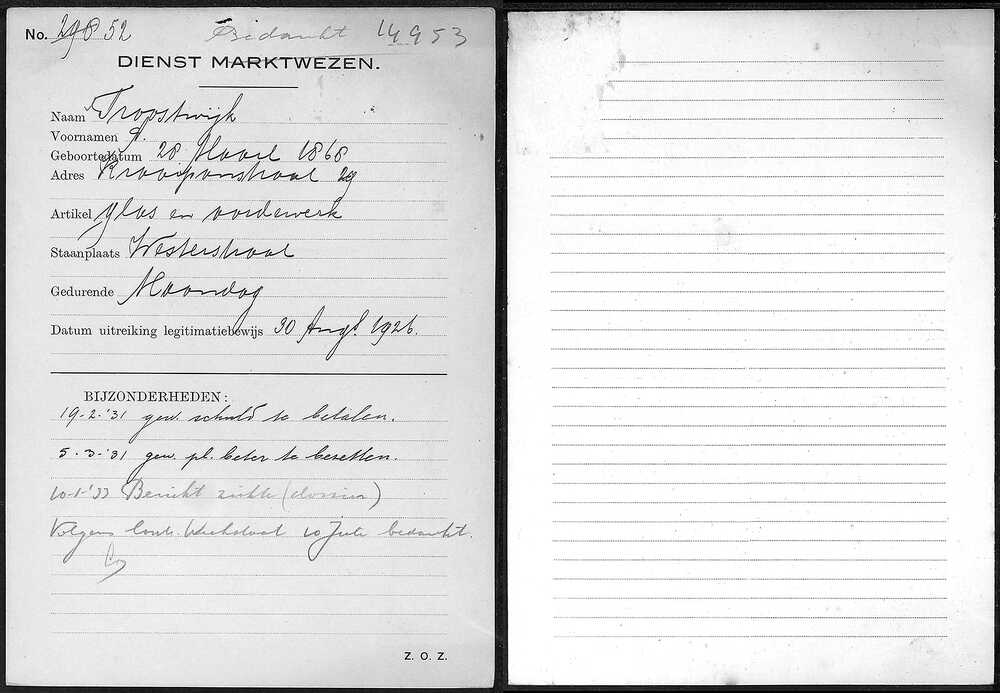 No. 298 52 Bedankt 14953
DIENST MARKTWEZEN.
Naam Troostwijk
Voornamen
Geboortedatum 28 Maart 1868
Adres 29
Artikel glas en aardewerk
Staanplaats Westerstraat
Gedurende Maandag
Datum uitreiking legitimatiebewijs 30 Aug. 1926.
BIJZONDERHEDEN:
19-2-'31 gew. schuld te betalen.
5-3-'31 gew. pl. beter te bezetten.
10-1-'33 Bericht ziekte (dossier)
Volgens 10 Juli bedankt.
Z. O. Z.